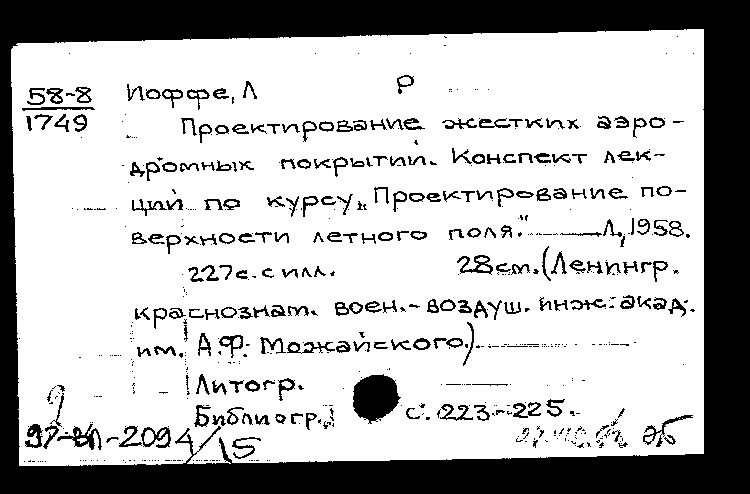 58-8 Иоффе, Л Р
1749 Проектирование жестких аэро-
дромных покрытий. Конспект лек-
ций по курсу „Проектирование по-
верхности летного поля." Л., 1958.
227с. с илл. 28см. (Ленингр.
краснознам. воен.-воздуш. инж. акад.
им. А.Ф. Можайского.)
Литогр.
Библиогр.: с. 223-225.
-2094/15